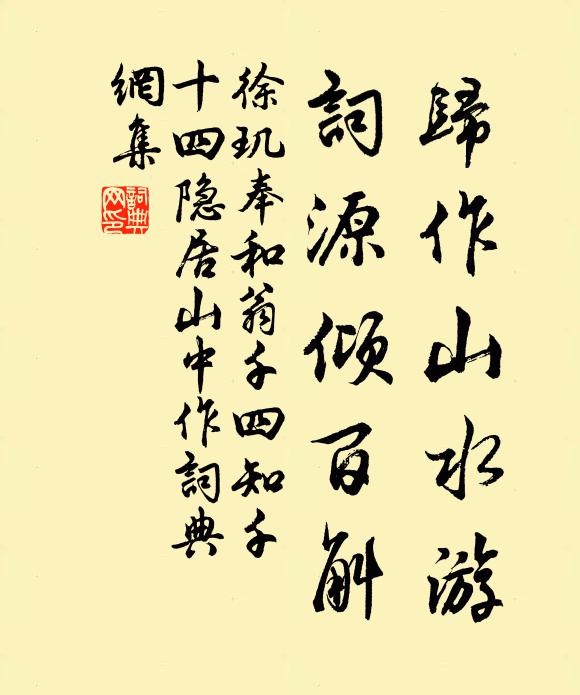 歸作山水游
詞源傾百斛
徐玑奉和翁千四知千
十四隐居山中作詞典
網集
詞典
网印